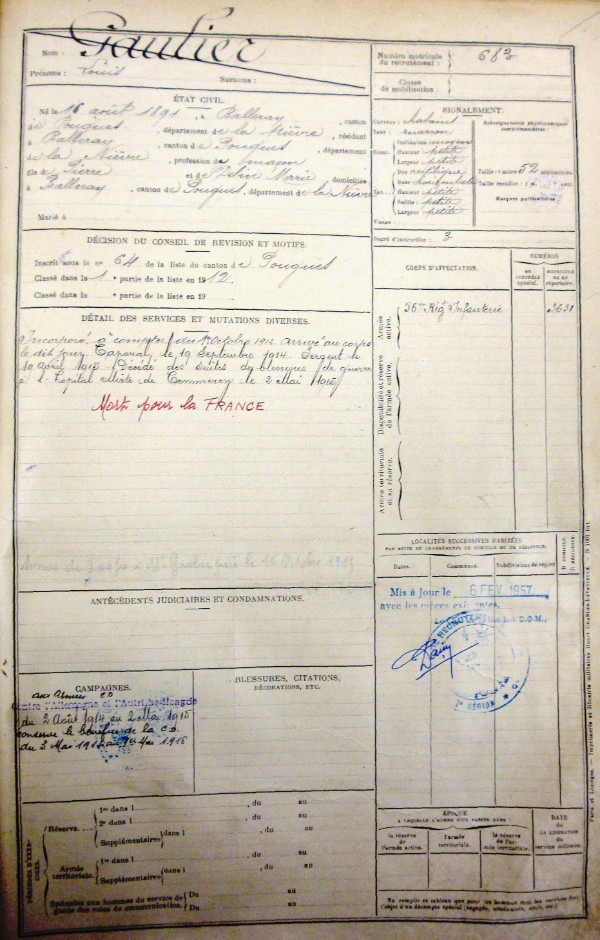 Nom : Gaulier
Prénoms : Louis Surnoms :
ÉTAT CIVIL.
Né le 16 août 1891, à Balleray, canton
de Pougues, département de la Nièvre, résidant
à Balleray, canton de Pougues, département
de la Nièvre, profession de maçon
fils de Pierre et de Marie domiciliés
à Balleray, canton de Pougues, département de la Nièvre
Marié à
DÉCISION DU CONSEIL DE REVISION ET MOTIFS.
Inscrit sous le n° 64 de la liste du canton de Pougues
Classé dans la 1 e partie de la liste en 1912
Classé dans la e partie de la liste en 19
DÉTAIL DES SERVICES ET MUTATIONS DIVERSES.
Incorporé à compter du Octobre 1912. Arrivé au corps
le dit jour. Caporal le 19 Septembre 1914. Sergent le
10 avril 1915. Décédé des suites de blessures de guerre
à l'hôpital mixte de Commercy le 2 Mai 1915
Mort pour la FRANCE
ANTÉCÉDENTS JUDICIAIRES ET CONDAMNATIONS.
CAMPAGNES.
Contre l'Allemagne et l'Autriche-Hongrie
du 2 Août 1914 au 2 Mai 1915
conserve le bénéfice de la
du 3 Mai
BLESSURES, CITATIONS,
DÉCORATIONS, ETC.
PÉRIODES D'EXERCICES.
Réserve
1re dans l , du au
2e dans l , du au
Supplémentaires dans l , du au
Armée territoriale.
1re dans l , du au
Supplémentaires dans l , du au
Spéciales aux hommes du service de garde des voies de communication. Du au
Du au
Numéro matricule du recrutement : 682
Classe de mobilisation :
SIGNALEMENT.
Cheveux : châtain
Yeux : marron
Front
Inclinaison moyen
Hauteur petite
Largeur petite
Nez
Dos rectiligne
Base horizontale
Hauteur petite
Saillie petite
Largeur petite
Visage
Renseignements physionomiques complémentaires :
Taille : 1 mètre 52 centimètres.
Taille rectifiée : 1 m. cent.
Marques particulières :
Degré d'instruction : 3
CORPS D'AFFECTATION.
NUMÉROS
au contrôle spécial.
matricule ou au répertoire.
Armée active.
56e Rég. d'Infanterie
Disponibilité et réserve de l'armée active.
Armée territoriale et sa réserve.
LOCALITÉS SUCCESSIVES HABITÉES
PAR SUITE DE CHANGEMENTS DE DOMICILE OU DE RÉSIDENCE.
Dates. Communes. Subdivisions de région
D domicile.
R résidence.
Mis à jour le 6 FEV 1957
avec les pièces existantes.
D.O.M.,
RECRUTEMENT
7e RÉGION
ÉPOQUE
À LAQUELLE L'HOMME DOIT PASSER DANS :
la réserve de l'armée active.
l'armée territoriale.
la réserve de l'armée territoriale.
DATE
de
LA LIBÉRATION
du service militaire.
Ne remplir ce tableau que pour les hommes dont les services font
l'objet d'un décompte spécial (engagés, condamnés, omis, etc.)